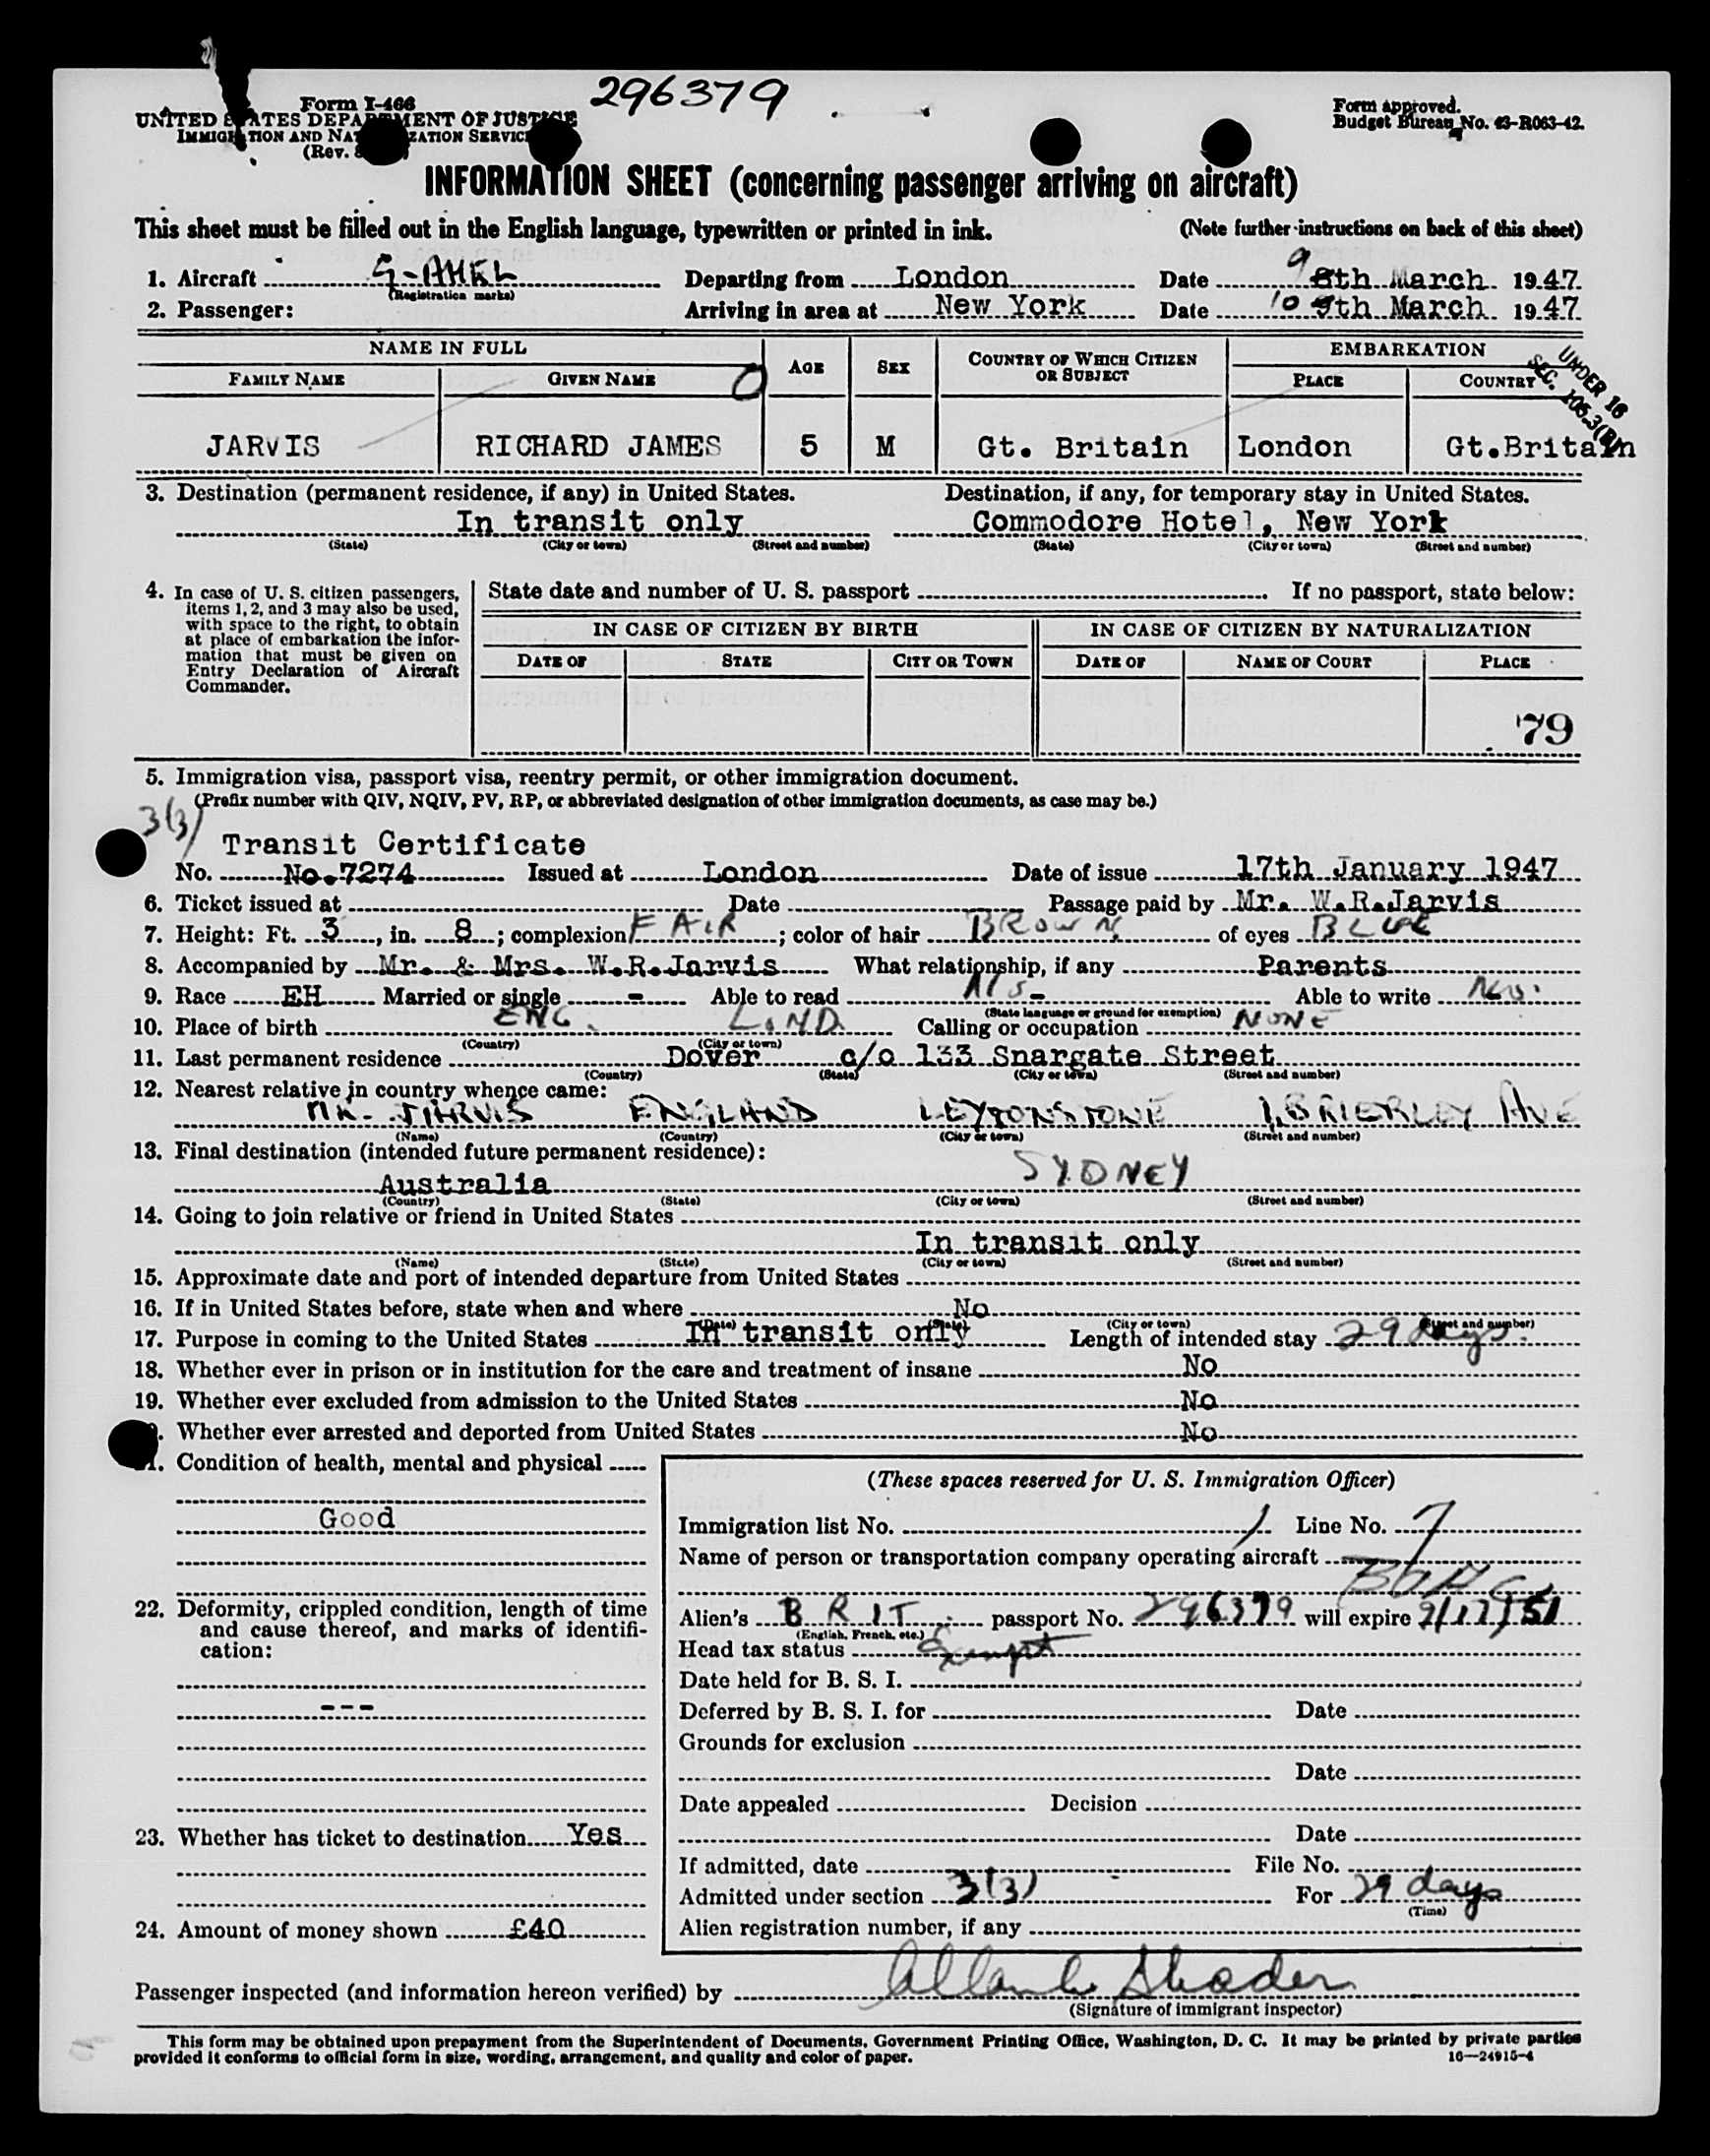 296379
Form I-466
UNITED STATES DEPARTMENT OF JUSTICE
IMMIGRATION AND NATURALIZATION SERVICE
(Rev.
Form approved.
Budget Bureau No. 43-R063-42.
INFORMATION SHEET (concerning passenger arriving on aircraft)
This sheet must be filled out in the English language, typewritten or printed in ink. (Note further instructions on back of this sheet)
1. Aircraft G-AHEL Departing from London Date 9 8th March 1947
(Registration marks)
2. Passenger: Arriving in area at New York Date 10 9th March 1947
NAME IN FULL AGE SEX COUNTRY OF WHICH CITIZEN OR SUBJECT EMBARKATION
FAMILY NAME GIVEN NAME PLACE COUNTRY
UNDER 16
SEC. 105.3(B)
JARVIS RICHARD JAMES 5 M Gt. Britain London Gt.Britain
3. Destination (permanent residence, if any) in United States. Destination, if any, for temporary stay in United States.
In transit only Commodore Hotel, New York
(State) (City or town) (Street and number) (State) (City or town) (Street and number)
4. In case of U. S. citizen passengers, items 1, 2, and 3 may also be used, with space to the right, to obtain at place of embarkation the information that must be given on Entry Declaration of Aircraft Commander.
State date and number of U. S. passport If no passport, state below:
IN CASE OF CITIZEN BY BIRTH IN CASE OF CITIZEN BY NATURALIZATION
DATE OF STATE CITY OR TOWN DATE OF NAME OF COURT PLACE
79
5. Immigration visa, passport visa, reentry permit, or other immigration document.
(Prefix number with QIV, NQIV, PV, RP, or abbreviated designation of other immigration documents, as case may be.)
3(3)
Transit Certificate
No. No.7274 Issued at London Date of issue 17th January 1947
6. Ticket issued at Date Passage paid by Mr. W.R.Jarvis
7. Height: Ft. 3, in. 8; complexion FAIR; color of hair BROWN of eyes BLUE
8. Accompanied by Mr. & Mrs. W.R.Jarvis What relationship, if any Parents
9. Race EH Married or single - Able to read No - Able to write No.
(State language or ground for exemption)
10. Place of birth ENG. LOND. Calling or occupation NONE
(Country) (City or town)
11. Last permanent residence Dover c/o 133 Snargate Street
(Country) (State) (City or town) (Street and number)
12. Nearest relative in country whence came:
MR. JARVIS ENGLAND LEYTONSTONE 1, BRIERLEY AVE
(Name) (Country) (City or town) (Street and number)
13. Final destination (intended future permanent residence):
Australia SYDNEY
(Country) (State) (City or town) (Street and number)
14. Going to join relative or friend in United States
In transit only
(Name) (State) (City or town) (Street and number)
15. Approximate date and port of intended departure from United States
16. If in United States before, state when and where No
(Date) (State) (City or town) (Street and number)
17. Purpose in coming to the United States In transit only Length of intended stay 29 days.
18. Whether ever in prison or in institution for the care and treatment of insane No
19. Whether ever excluded from admission to the United States No
. Whether ever arrested and deported from United States No
1. Condition of health, mental and physical
Good
22. Deformity, crippled condition, length of time and cause thereof, and marks of identification:
---
23. Whether has ticket to destination Yes
24. Amount of money shown £40
(These spaces reserved for U. S. Immigration Officer)
Immigration list No. 1 Line No. 7
Name of person or transportation company operating aircraft
BOAC
Alien's BRIT. passport No. 296379 will expire 9/17/51
(English, French, etc.)
Head tax status Exempt
Date held for B. S. I.
Deferred by B. S. I. for Date
Grounds for exclusion
Date
Date appealed Decision
Date
If admitted, date File No.
Admitted under section 3(3) For 29 days
(Time)
Alien registration number, if any
Passenger inspected (and information hereon verified) by
(Signature of immigrant inspector)
This form may be obtained upon prepayment from the Superintendent of Documents, Government Printing Office, Washington, D. C. It may be printed by private parties
provided it conforms to official form in size, wording, arrangement, and quality and color of paper. 16—24915-4